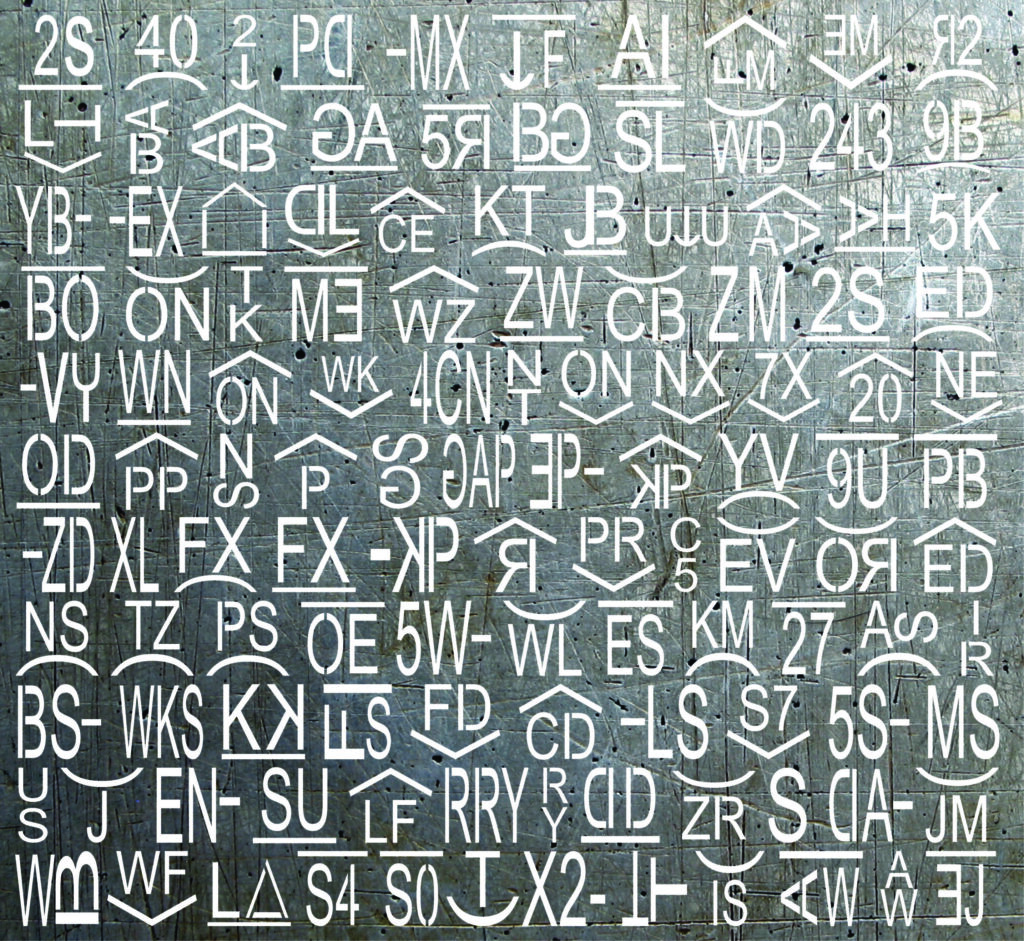 2S 40 2T PD -MX TF AI FM ME R2
LT AB AB GA 5R BG SL WD 243 9B
YB- -EX DL CE KT JB UTU AA AH 5K
BO ON TK ME WZ ZW CB ZM 2S ED
-VY WN ON WK 4CN NT ON NX 7X 20 NE
OD PP NS P SG GAP EP- KP YV 9U PB
-ZD XL FX FX -KP R PR C5 EV OR ED
NS TZ PS OE 5W- WL ES KM 27 AS IR
BS- WKS KK FS FD CD -LS S7 5S- MS
US J EN- SU LF RRY RY DD ZR S DA- JM
WE WF L S4 S0 T X2- TT IS AW AW EJ